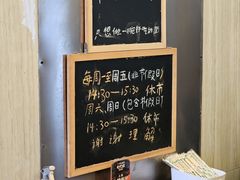 每周一至周五(非节假日)
14:30—15:30 休市
周六、周日(包含节假日)
14:30—15:30 休午
谢谢理解